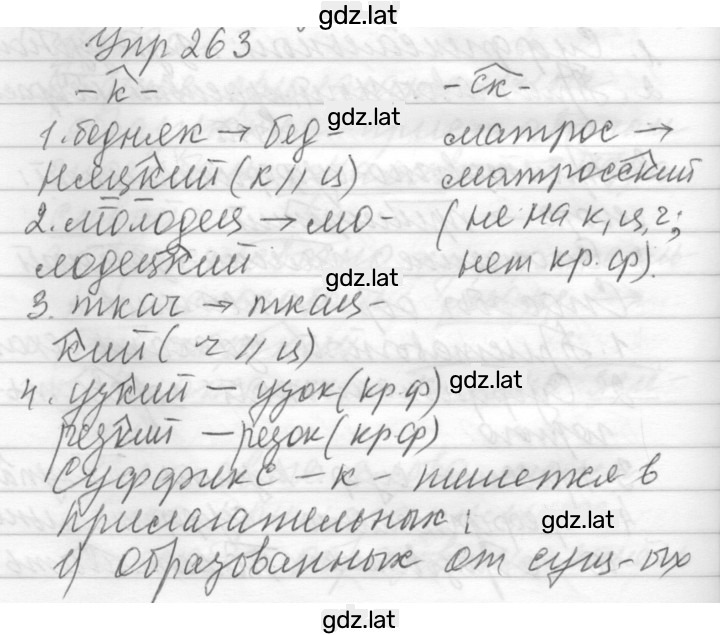 gdz.lat
Упр 263
-к- -ск-
gdz.lat
1. бедняк → бед- матрос →
няцкий (к // ц) матросский
2. молодец → мо- (не на к, ц, ч;
лодецкий нет кр. ф).
gdz.lat
3. ткач → ткац-
кий (ч // ц)
gdz.lat
4. узкий — узок (кр.ф)
резкий — резок (кр.ф)
Суффикс -к- пишется в
прилагательных:
gdz.lat
1) образованных от сущ-ых
gdz.lat